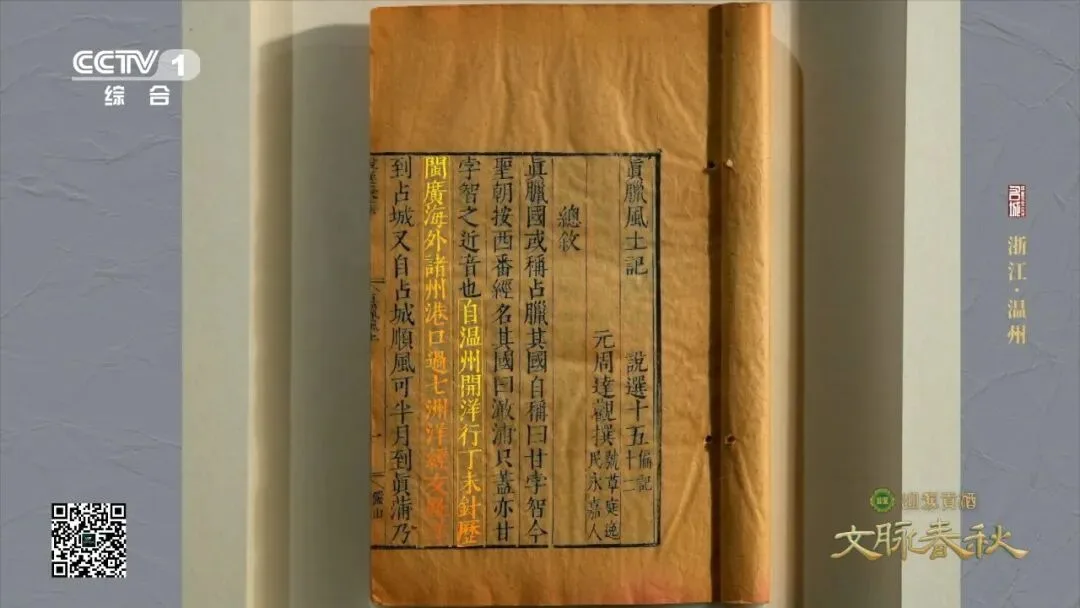 CCTV 1
综合
眞臘風土記 説選十五 偏記十二
元周達觀撰 號草庭逸民永嘉人
總敘
眞臘國或稱占臘其國自稱曰甘孛智今
聖朝按西番經名其國曰澉浦只蓋亦甘
孛智之近音也自温州開洋行丁未針歷
閩廣海外諸州港口過七洲洋經交趾洋
到占城又自占城順風可半月到眞蒲乃
名城
浙江·温州
文脉春秋